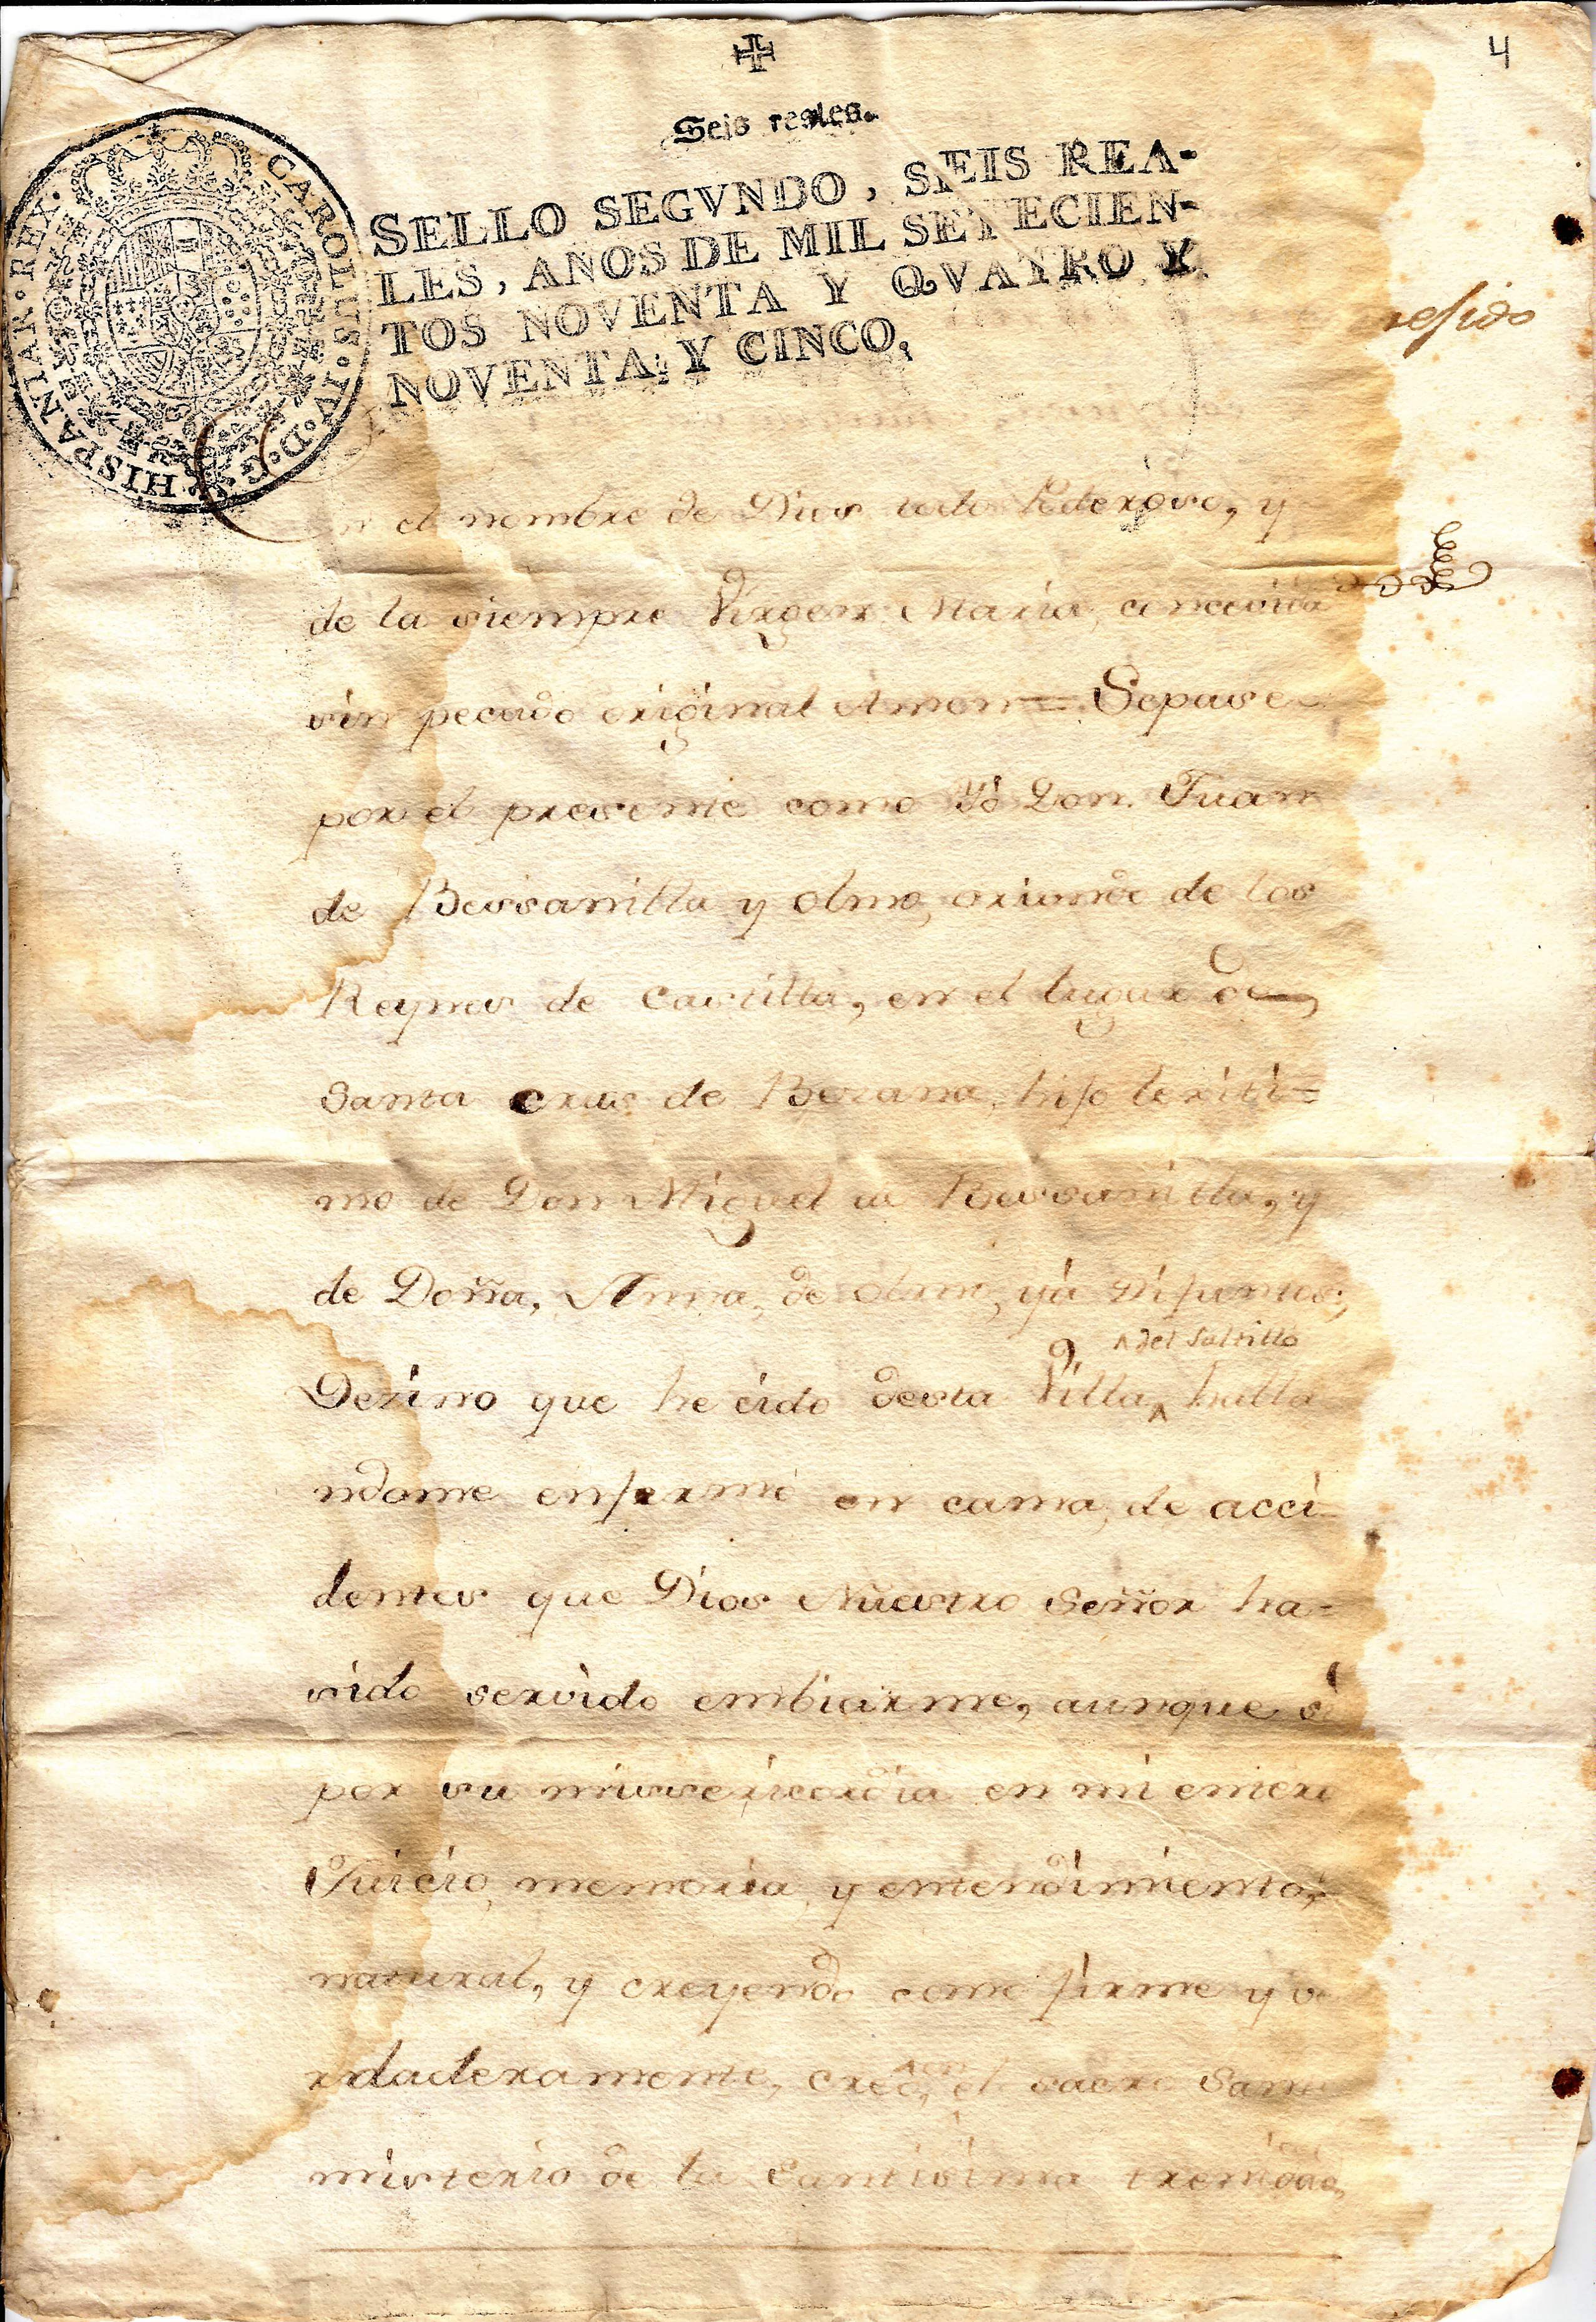 4
Seis reales.
CAROLUS · IV · D · G · HISPANIAR · REX ·
SELLO SEGVNDO, SEIS REA-
LES, AÑOS DE MIL SETECIEN-
TOS NOVENTA Y QVATRO Y
NOVENTA Y CINCO.
En el nombre de Dios todo Poderoso, y
de la siempre Virgen Maria, concevida
sin pecado original Amen = Sepase
por el presente como Yò Don. Juan
de Bessanilla y Olmo, oriundo de los
Reynos de Castilla, en el lugar de
Santa crus de Bezana, hijo lexiti=
mo de Don Miguel de Bessanilla, y
de Doña, Anna, de Olmo, yá difuntos,
^ del Saltillo
Dezino que he cido desta Villa ^ halla
ndome enfermo en cama, de acci-
dentes que Dios Nuestro Señor ha=
sido servido embiarme, aunque si
por su missericordia en mi entero
Juicio, memoria, y entendimiento,
natural, y creyendo como firme y ve
rdaderamente, creo, el sacro Santo
misterio de la Santisima trenidad,